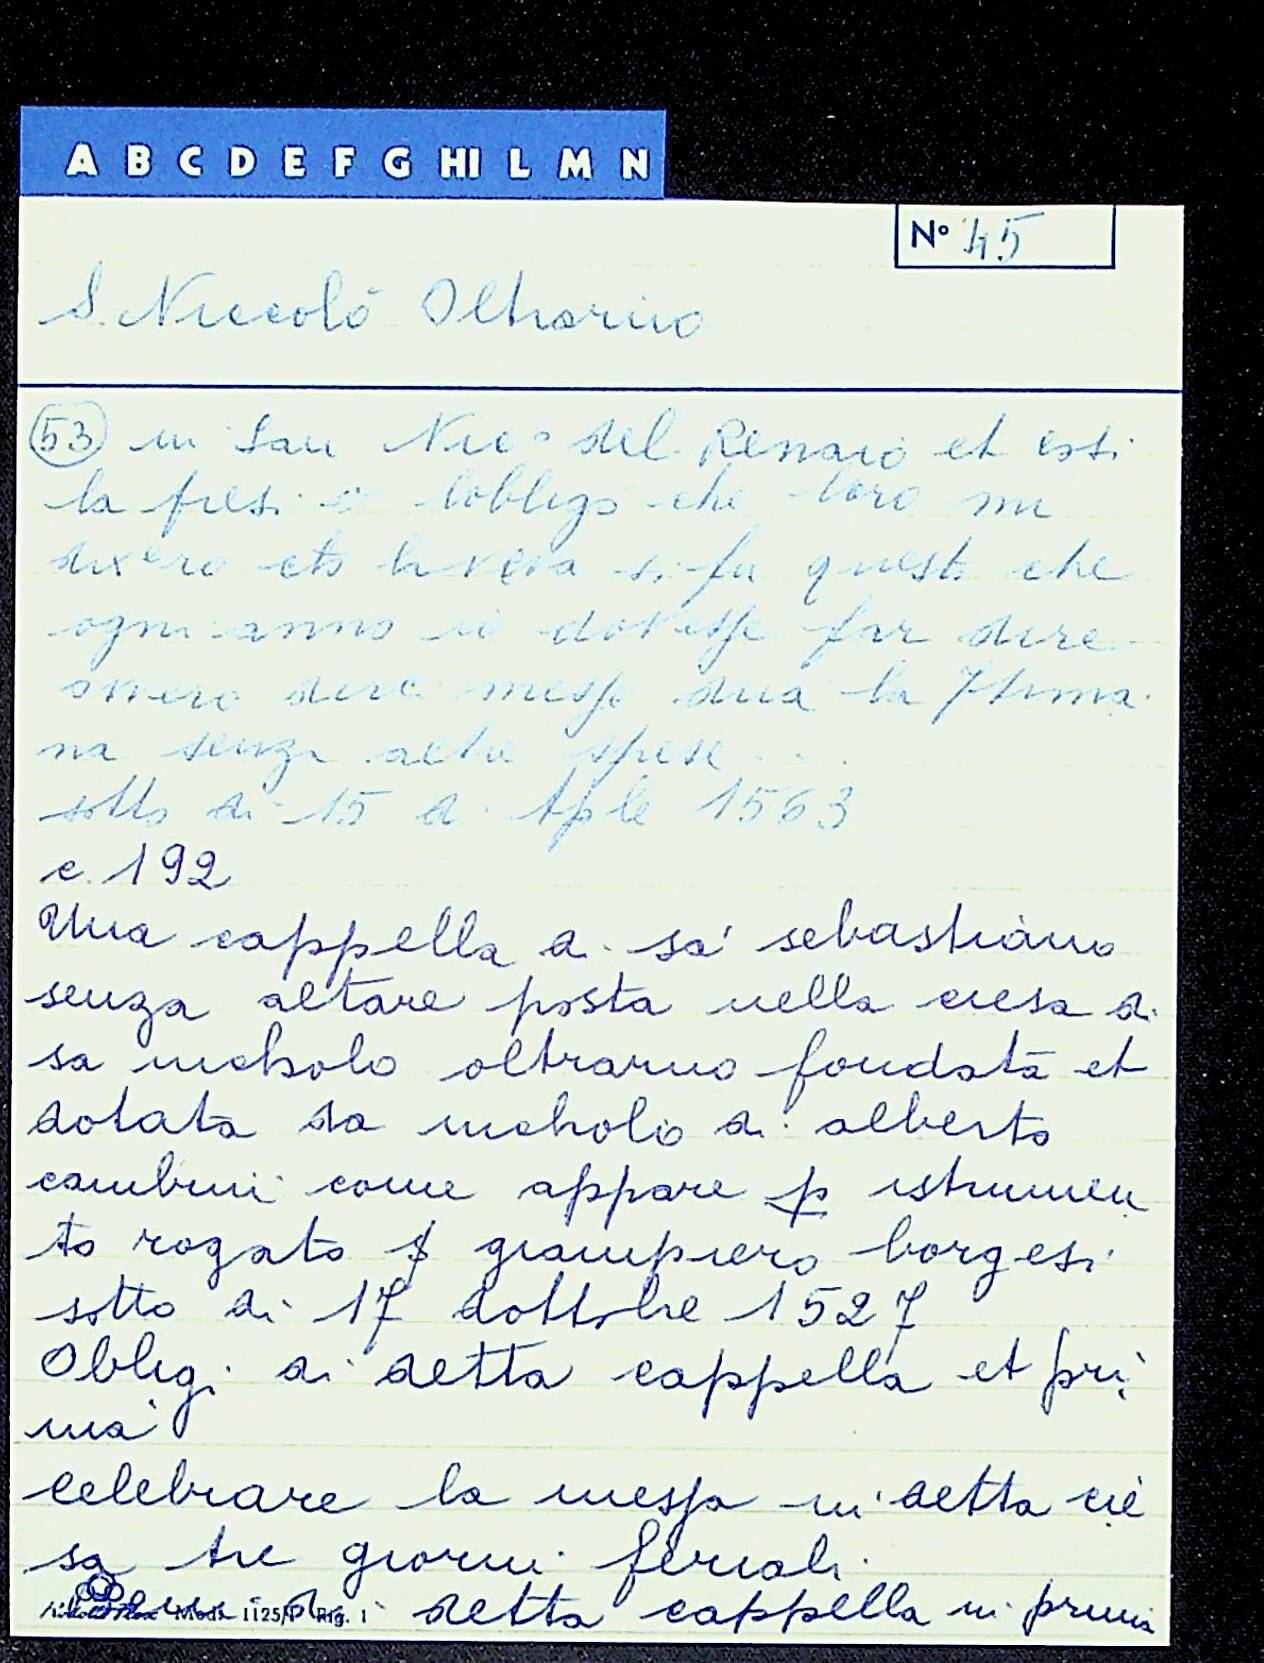 A B C D E F G HI L M N
N° 45
S. Niccolò Oltrarno
(53) in San Nic° del Renaio et essi
la presi e lobligo che loro mi
dixero che haveva si fu questo che
ogni anno io dovesse far dire
overo dire messe dua la 7tima
na senza altre spese ...
sotto di 15 di Aple 1563
c. 192
Una cappella di sa' sebastiano
senza altare posta nella ciesa di
sa nicholo oltrarno fondata et
dotata da nicholo di alberto
cambini come appare p istrumen
to rogato giampiero borgesi
sotto di 17 dottobre 1527
Obligi di detta cappella et pri
ma
celebrare la messa in detta cie
sa tre giorni feriali
Beni di detta cappella in prima
Mod. 1125/P Rig. 1